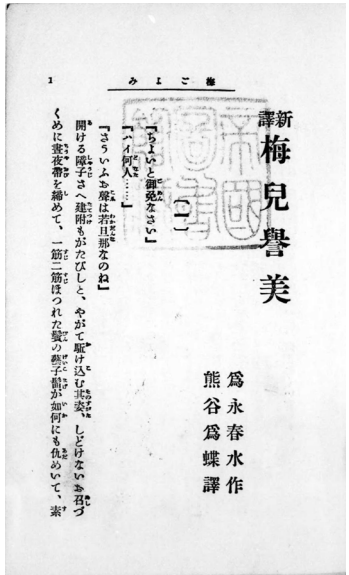 梅ごよみ
1
新譯 梅兒譽美
爲永春水作
熊谷爲蝶譯
(一)
『ちよいと御免なさい』
『ハイ何人……』
『さういふお聲は若旦那なのね』
開ける障子さへ建附もがたぴしと、やがて駈け込む其姿、しどけないお召づ
くめに晝夜帶を締めて、一筋二筋ほつれた髮の藝子髷が如何にも仇めいて、素